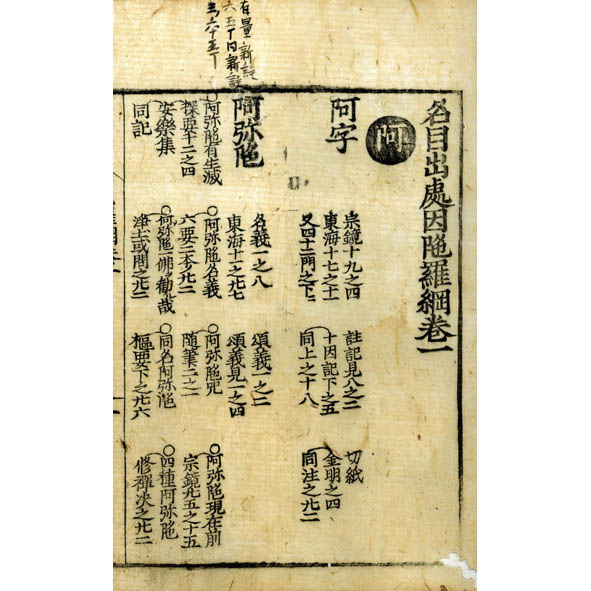 名目出處因陁羅網卷一
阿
阿字
宗鏡十九之四 註記見八之二 切紙
東海十七之十一 十因記下之五 金明之四
又四十二門之下二 同上之十八 同注之廿二
阿弥陁
名義一之八 頌義一之二
東海十一之廿七 頌義見一之四
○阿弥陁有生滅 ○阿弥陁名義 ○阿弥陁咒 ○阿弥陁現在前
探要十二之四 六要二本廿二 随筆二之一 宗鏡九五之十五
安樂集 ○阿弥陁一佛勸哉 ○同名阿弥陁 ○四種阿弥陁
同記 淨土或問之廿二 樞要下之廿六 修禪决之廿二